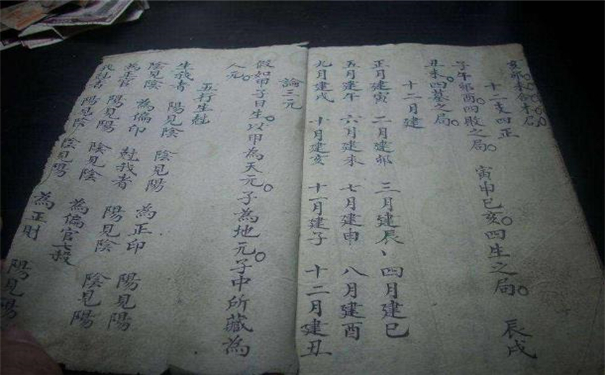 亥卯未合木局
十二支四正
子午卯酉四敗之局。 寅申巳亥。四生之局。 辰戌
丑未四墓之局。
十二月建
正月建寅 二月建卯 三月建辰、四月建巳
五月建午 六月建未 七月建申 八月建酉
九月建戌 十月建亥 十一月建子 十二月建丑
論三元
假如甲子日生。以甲為天元。子為地元。子中所藏為
人元。
五行生尅
生我者 陽見陰 陰見陽 為正印 陽見陽
陰見陰 為偏印 尅我者 陽見陰 陰見陽
為正官 陽見陽 陰見陰 為偏官七殺
陽見陰 陰見陽 為正財 陽見陽